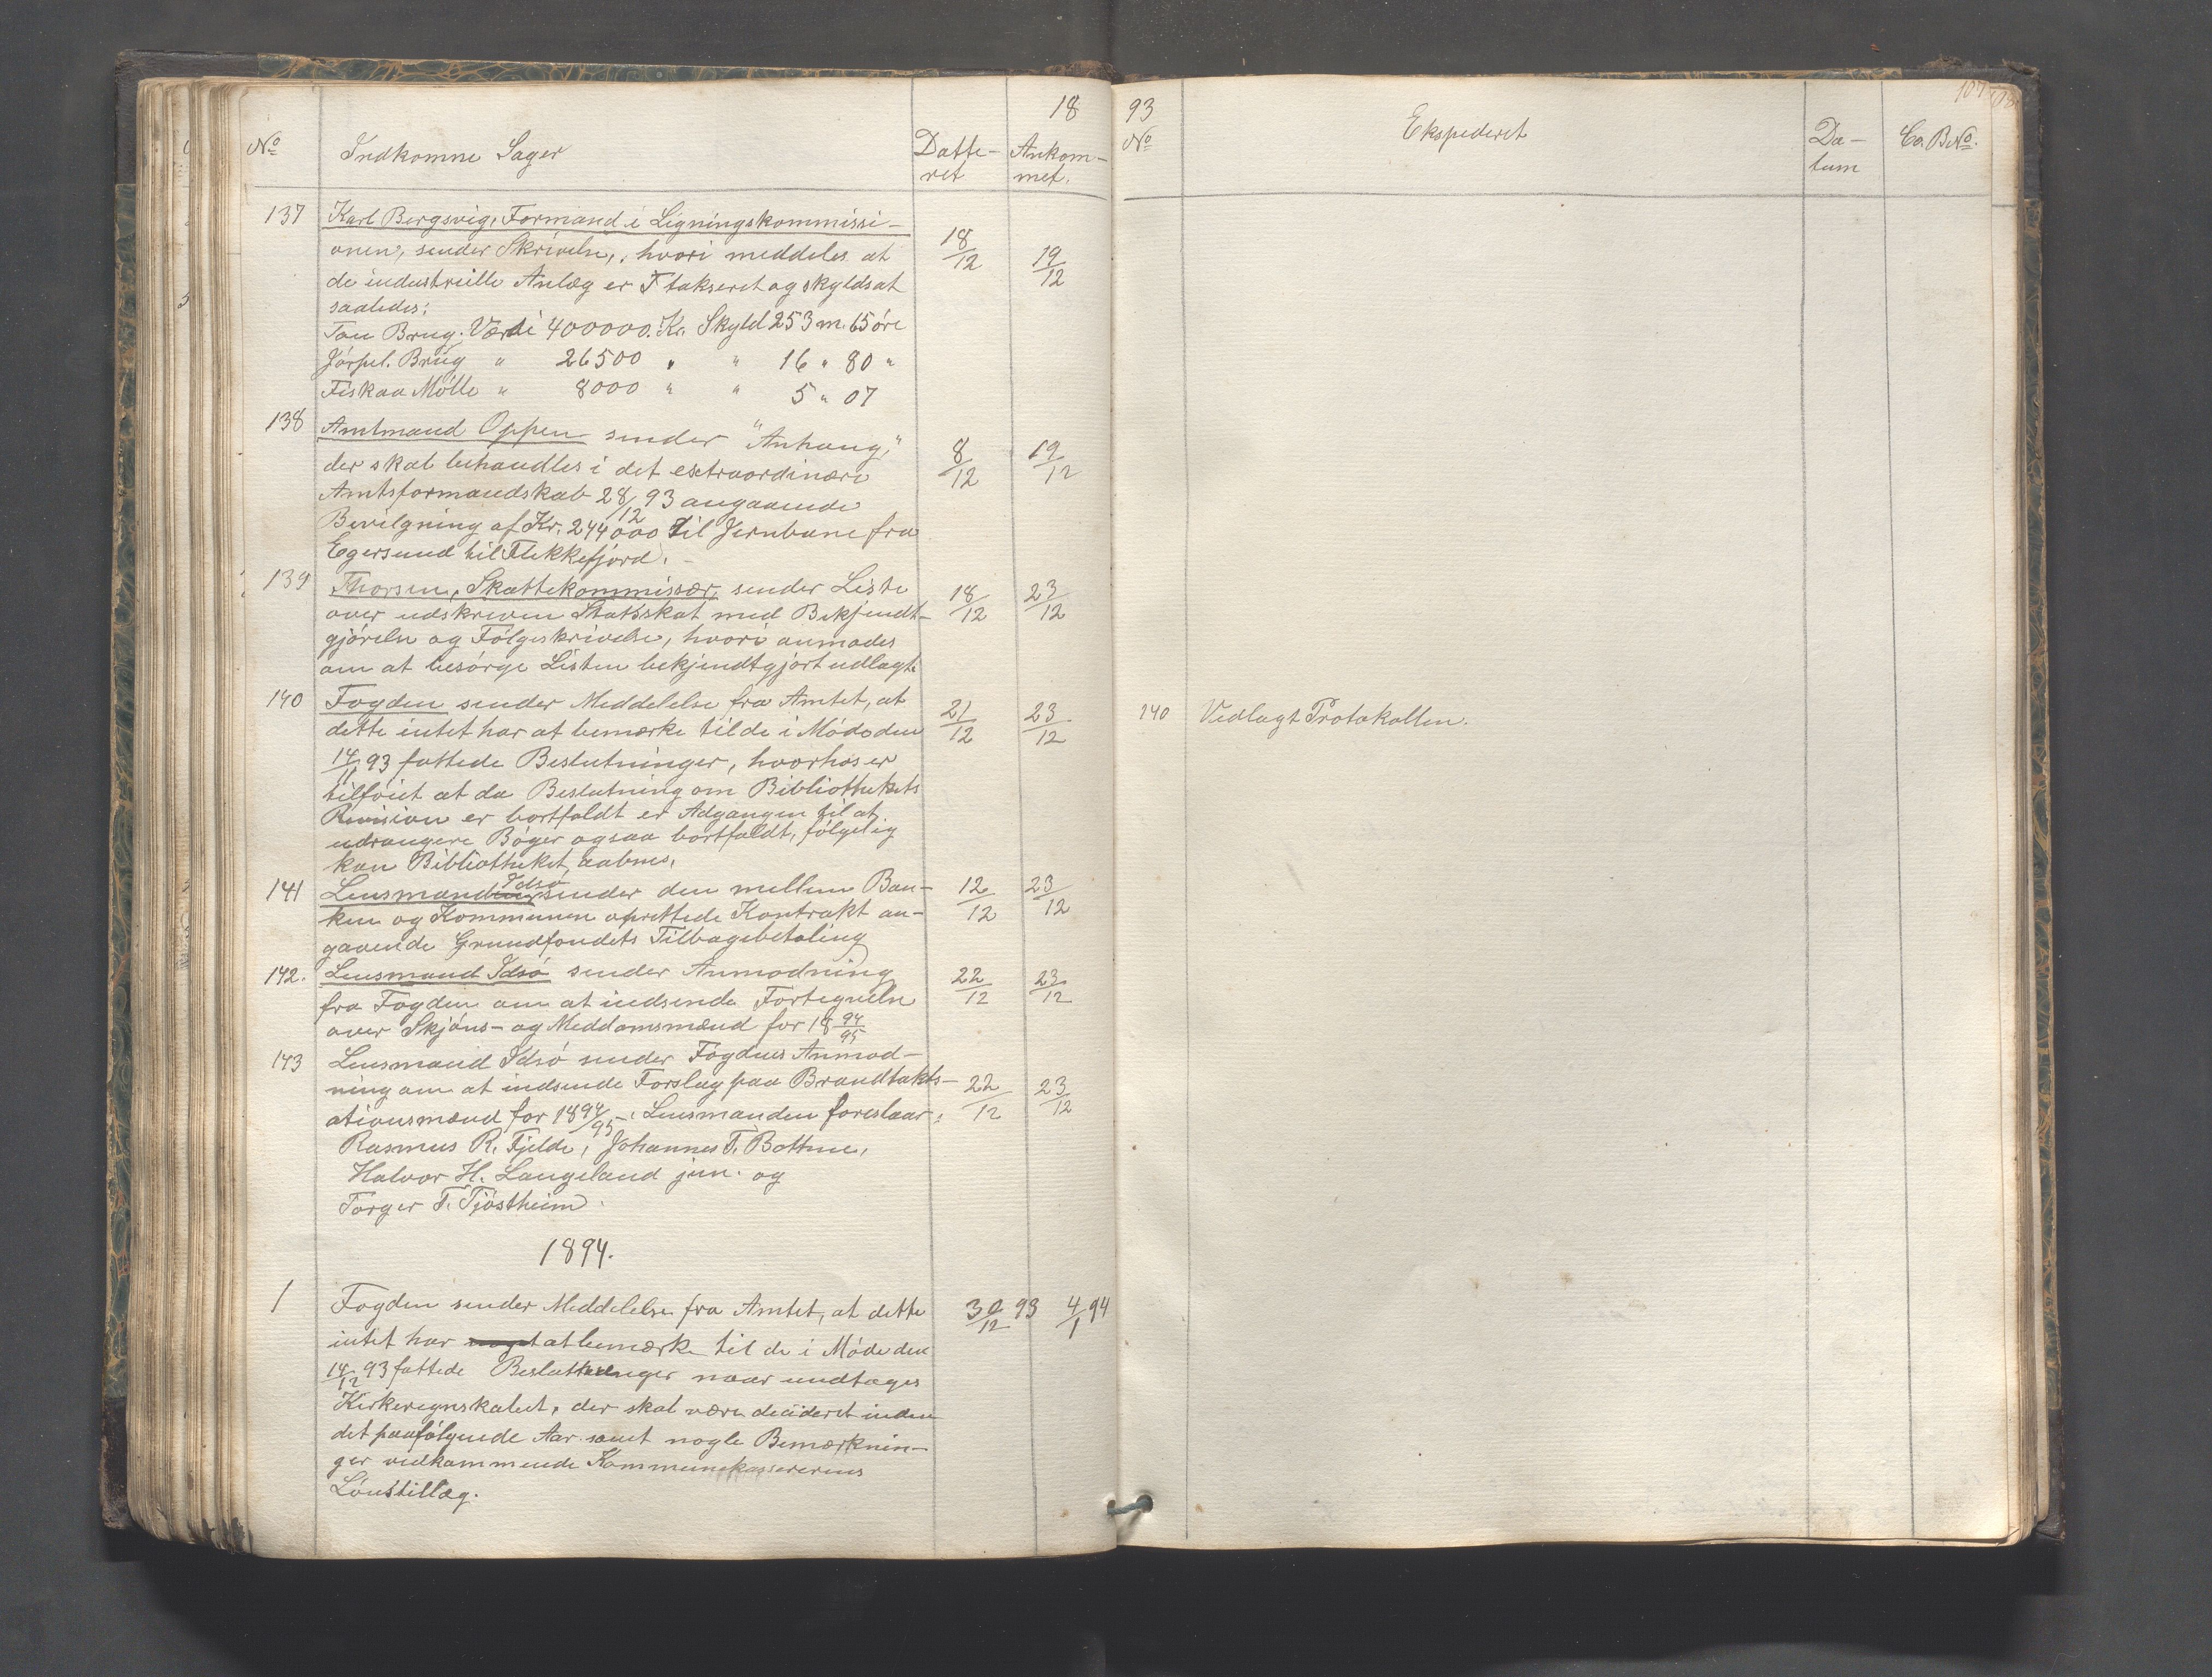 18
No Indkomne Sager Datte- Ankom-
ret met.
137 Karl Bergsvig, Formand i Ligningskommissi-
onen, sender Skrivelse, hvori meddeles at 18/12 19/12
de industrielle Anlæg er takseret og skyldsat
saaledes:
Tau Brug. Værdi 400000. Kr. Skyld 253 m. 65 öre
Jörpel. Brug " 26500 " " 16 " 80 "
Fiskaa Mölle " 8000 " " 5 " 07
138 Amtmand Oppen sender "Anhang," 8/12 19/12
der skal behandles i det extraordinære
Amtsformandskab 28/12 93 angaaende
Bevilgning af Kr. 244000 til Jernbane fra
Egersund til Flekkefjord.
139 Thorsen, Skattekommissær, sender Liste 18/12 23/12
over udskreven Statsskat med Bekjendt-
gjörelse og Fölgeskrivelse, hvori anmodes
om at besörge Listen bekjendtgjort udlagt.
140 Fogden sender Meddelelse fra Amtet, at 21/12 23/12
dette intet har at bemærke til de i Möde den
14/11 93 fattede Beslutninger, hvorhos er
tilföiet at da Beslutning om Bibliothekets
Revision er bortfaldt er Adgangen til at
udrangere Böger ogsaa bortfaldt, fölgelig
kan Bibliotheket aabnes.
141 Lensmand Idsö sender den mellem Ban- 12/12 23/12
ken og Kommunen oprettede Kontrakt an-
gaaende Grundfondets Tilbagebetaling
142. Lensmand Idsö sender Anmodning 22/12 23/12
fra Fogden om at indsende Fortegnelse
over Skjöns- og Meddomsmænd for 18 94/95
143 Lensmand Idsö sender Fogdens Anmod-
ning om at indsende Forslag paa Brandtakts- 22/12 23/12
ationsmænd for 18 94/95 -. Lensmanden foreslaar:
Rasmus R. Fjelde, Johannes T. Bottne,
Halvor H. Langeland jun. og
Torger T. Tjöstheim.
1894.
1 Fogden sender Meddelelse fra Amtet, at dette 30/12 93 4/1 94
intet har noget at bemærke til de i Möde den
14/12 93 fattede Beslutninger naar undtages
Kirkeregnskabet, der skal være decideret inden
det paafölgende Aar samt nogle Bemærknin-
ger vedkommende Kommunekassererens
Lönstillæg.
93 107
No Ekspederet Da- Co. B. No.
tum
140 Vedlagt Protokollen.